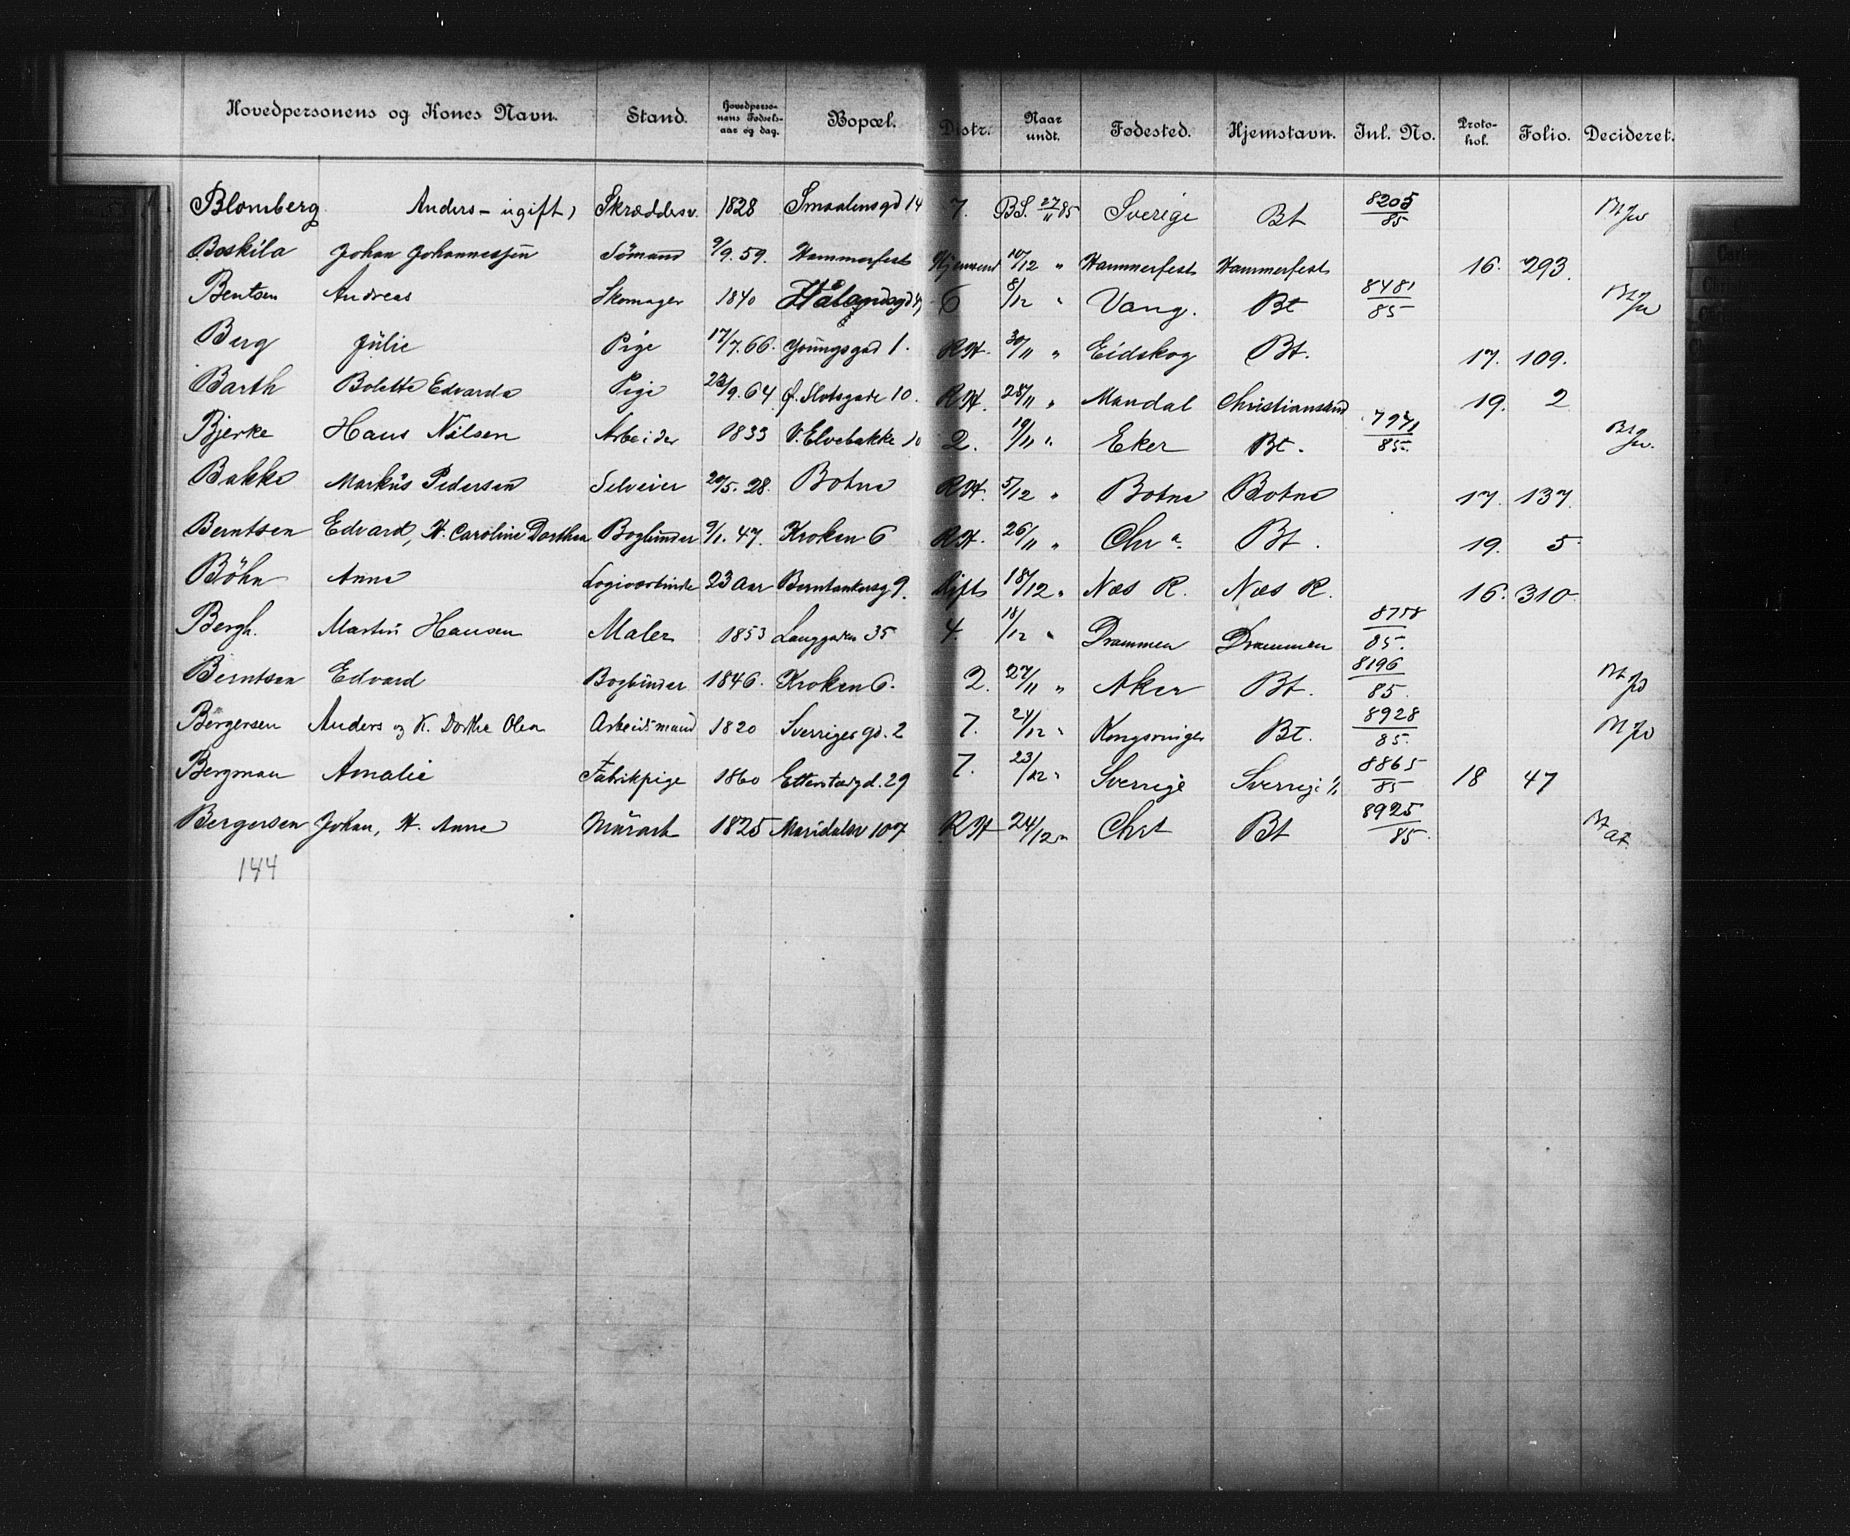 Hovedpersonens og Kones Navn. Stand. Hovedpersonens Fødselsaar og dag. Bopæl. Distr. Naar undt. Fødested. Hjemstavn. Inl. No. Protokol. Folio. Decideret.
Blomberg Anders - ugift, Skræddersv. 1828 Smaalensgd 14 7. BS. 27/11 85 Sverige Bt 8205/85
Boskila Johan Johannessen Sømand 9/9. 59. Hammerfest 10/12 " Hammerfest Hammerfest 16. 293.
Bentsen Andreas Skomager 1840 6 8/12 " Vang. Bt 8481/85
Berg Julie Pige 17/7. 66. Youngsgad 1. RH. 30/11 " Eidskog Bt. 17. 109.
Barth Bolette Edvarda Pige 23/9. 64 Ø. Slotsgade 10. RH. 28/11 " Mandal Christianssund 19. 2
Bjerke Hans Nilsen Arbeider 1833 V. Elvebakke 10 2. 19/11 " Eker Bt. 7971/85
Bakke Markus Pedersen Selveier 20/5. 28. Botne RH. 5/12 " Botne Botne 17. 137.
Berntsen Edvard, H. Caroline Dorthea Bogbinder 9/1. 47. Kroken 6 RH. 26/11 " Chr a. Bt. 19. 5
Bøhn Anne 23 Aar Berntankersg 9. 18/12 " Næs R. Næs R. 16. 310.
Bergh. Martin Hansen Maler 1853 Langgaden 35 4. 18/12 " Drammen Drammen 8758/85.
Berntsen Edvard Bogbinder 1846. Kroken 6. 2. 27/11 " Aker Bt. 8196/85.
Bergersen Anders og K. Dorthe Olea Arbeidsmand 1820 Sverriges gd. 2 7. 24/12 " Kongsvinger Bt. 8928/85.
Bergman Amalie Fabrikpige 1860 Etterstadgd. 29 7. 23/12 " Sverrige Sverrige 8865/85 18 47
Bergersen Johan, H. Anne Murarb 1825 Maridalsv 107 RH 24/12 " Chra Bt 8925/85.
144